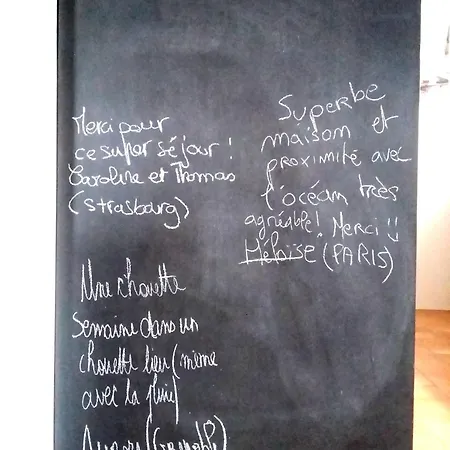 Merci pour
ce super séjour !
Caroline et Thomas
(Strasbourg)
Superbe
maison et
proximité avec
l'océan très
agréable ! Merci !!
Héloïse (PARIS)
Une chouette
semaine dans un
chouette lieu (même
avec la pluie)
(Grenoble)